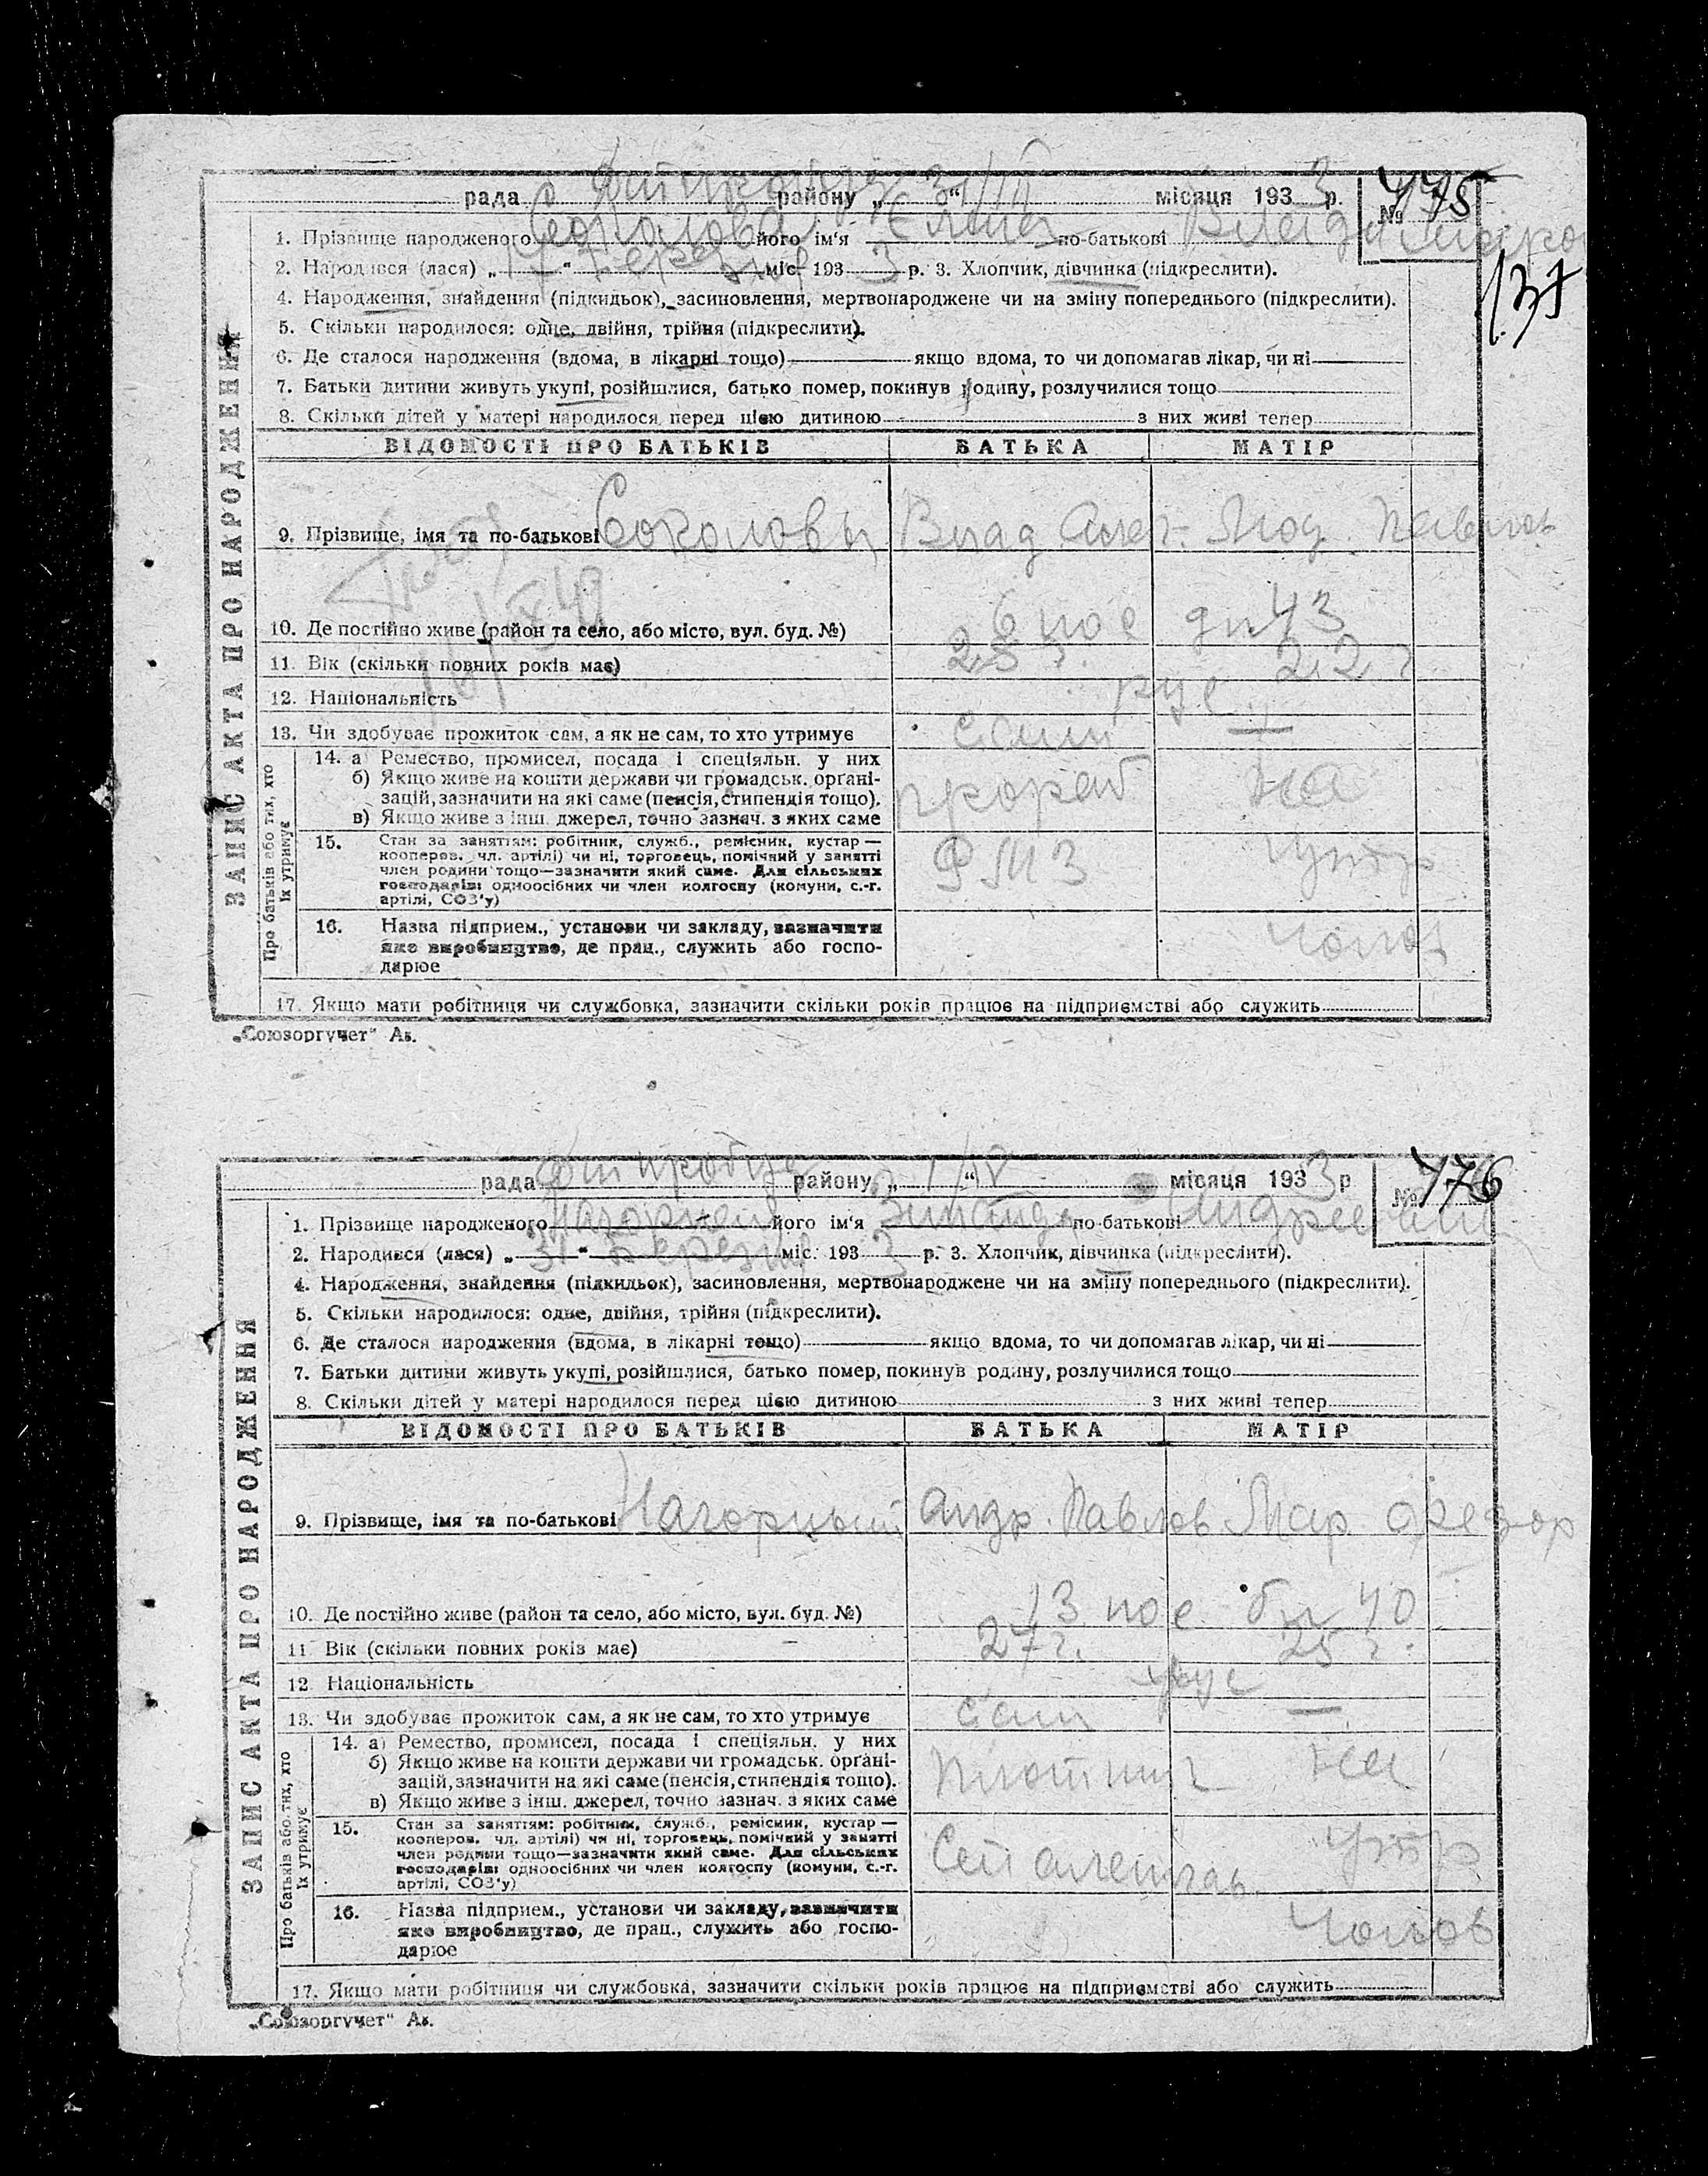 рада району „ 3 “ місяця 193 3 р. № 775
1. Прізвище народженого Соколова його ім‘я Єлена по-батькові Владимиро
137
2. Народився (лася) „ 17 “ березня міс. 193 3 р. 3. Хлопчик, дівчинка (підкреслити).
4. Народження, знайдення (підкидьок), засиновлення, мертвонароджене чи на зміну попереднього (підкреслити).
5. Скільки народилося: одне, двійня, трійня (підкреслити).
6. Де сталося народження (вдома, в лікарні тощо) якщо вдома, то чи допомагав лікар, чи ні
7. Батьки дитини живуть укупі, розійшлися, батько помер, покинув родину, розлучилися тощо
8. Скільки дітей у матері народилося перед цією дитиною з них живі тепер
ВІДОМОСТІ ПРО БАТЬКІВ БАТЬКА МАТІР
9. Прізвище, імя та по-батькові Соколовы Влад. Алек. Люд. Павлов
10. Де постійно живе (район та село, або місто, вул. буд. №) 6 пос д н 43
11. Вік (скільки повних років має) 25 г. 22 г
12. Національність рус
13. Чи здобуває прожиток сам, а як не сам, то хто утримує сам —
14. а) Ремество, промисел, посада і спеціяльн. у них
б) Якщо живе на кошти держави чи громадськ. орґані-
зацій, зазначити на які саме (пенсія, стипендія тощо).
в) Якщо живе з інш. джерел, точно зазнач. з яких саме
прораб на
15. Стан за заняттям: робітник, служб., ремісник, кустар —
кооперов. чл. артілі) чи ні, торговець, помічний у занятті
член родини тощо—зазначити який саме. Для сільських
господарів: одноосібних чи член колгоспу (комуни, с.-г.
артілі, СОЗ‘у)
РМЗ утр
16. Назва підприєм., установи чи закладу, зазначити
яке виробництво, де прац., служить або госпо-
дарює
17. Якщо мати робітниця чи службовка, зазначити скільки років працює на підприємстві або служить
ЗАПИС АКТА ПРО НАРОДЖЕННЯ
Про батьків або тих, хто
їх утримує
„Союзоргучет“ Ак.
рада району „ 1/IV “ місяця 193 3 р № 776
1. Прізвище народженого його ім‘я по-батькові
2. Народився (лася) „ 31 “ березня міс. 193 3 р. 3. Хлопчик, дівчинка (підкреслити).
4. Народження, знайдення (підкидьок), засиновлення, мертвонароджене чи на зміну попереднього (підкреслити).
5. Скільки народилося: одне, двійня, трійня (підкреслити).
6. Де сталося народження (вдома, в лікарні тощо) якщо вдома, то чи допомагав лікар, чи ні
7. Батьки дитини живуть укупі, розійшлися, батько помер, покинув родину, розлучилися тощо
8. Скільки дітей у матері народилося перед цією дитиною з них живі тепер
ВІДОМОСТІ ПРО БАТЬКІВ БАТЬКА МАТІР
9. Прізвище, імя та по-батькові Нагорный Андр. Павлов Мар. Федор
10. Де постійно живе (район та село, або місто, вул. буд. №) 13 пос б н 40
11 Вік (скільки повних років має) 27 г. 25 г.
12 Національність рус
13. Чи здобуває прожиток сам, а як не сам, то хто утримує сам —
14. а) Ремество, промисел, посада і спеціяльн. у них
б) Якщо живе на кошти держави чи громадськ. орґані-
зацій, зазначити на які саме (пенсія, стипендія тощо).
в) Якщо живе з інш. джерел, точно зазнач. з яких саме
плотник на
15. Стан за заняттям: робітник, служб., ремісник, кустар —
кооперов. чл. артілі) чи ні, торговець, помічний у занятті
член родини тощо—зазначити який саме. Для сільських
господарів: одноосібних чи член колгоспу (комуни, с.-г.
артілі, СОЗ‘у)
утр
16. Назва підприєм., установи чи закладу, зазначити
яке виробництво, де прац., служить або госпо-
дарює
17. Якщо мати робітниця чи службовка, зазначити скільки років працює на підприємстві або служить
ЗАПИС АКТА ПРО НАРОДЖЕННЯ
Про батьків або тих, хто
їх утримує
„Союзоргучет“ Ак.